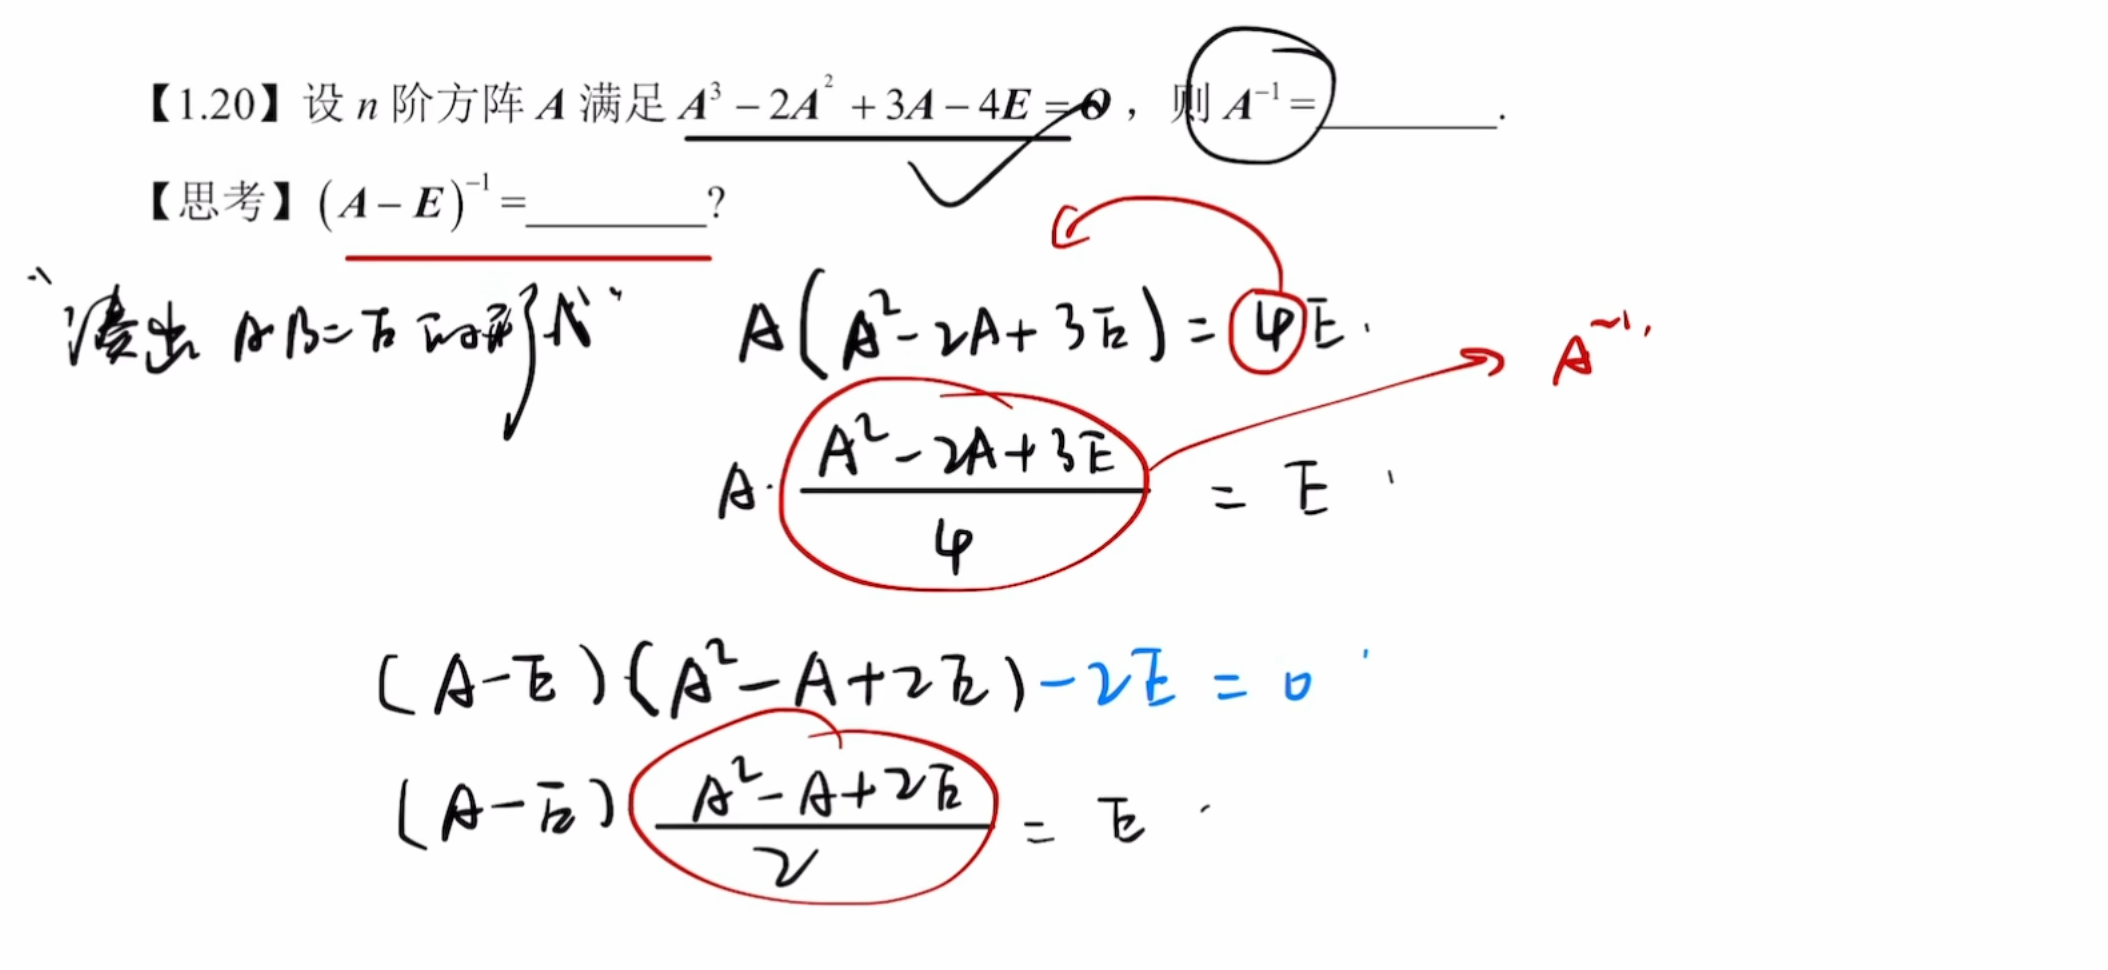 【1.20】设 n 阶方阵 A 满足 A³ − 2A² + 3A − 4E = O，则 A⁻¹ = ________.
【思考】(A − E)⁻¹ = ________?
“凑出 AB=E 的形式”
A(A² − 2A + 3E) = 4E.
A⁻¹.
A · (A² − 2A + 3E)/4 = E
(A − E)(A² − A + 2E) − 2E = 0
(A − E) (A² − A + 2E)/2 = E